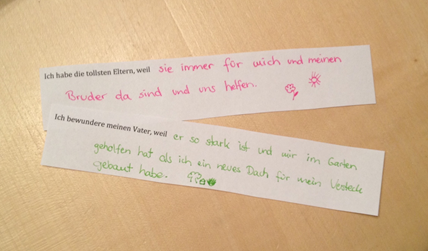 Ich habe die tollsten Eltern, weil sie immer für mich und meinen
Bruder da sind und uns helfen.
Ich bewundere meinen Vater, weil er so stark ist und mir im Garten
geholfen hat als ich ein neues Dach für mein Versteck
gebaut habe.